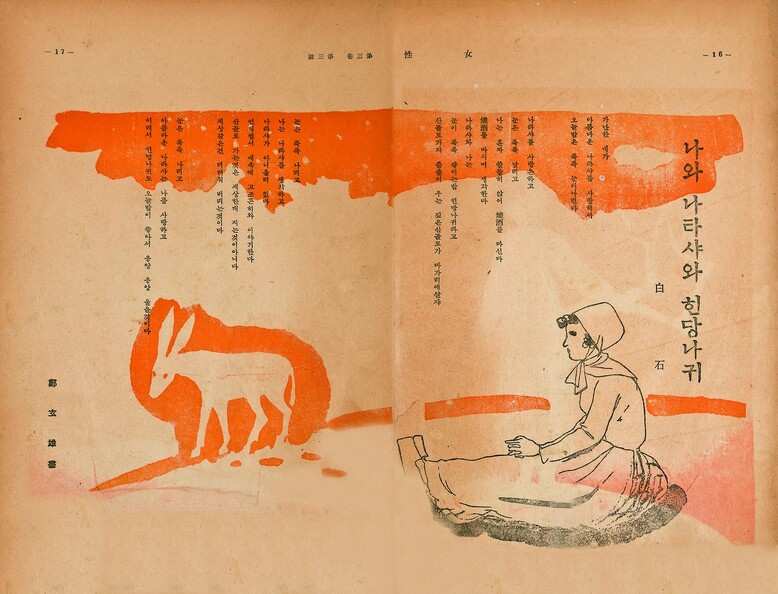 —16—
女性
第三卷 第三號
—17—
나와 나타샤와 힌당나귀
白石
가난한 내가
아름다운 나타샤를 사랑해서
오늘밤은 푹푹 눈이나린다
나타샤를 사랑은하고
눈은 푹푹 날리고
나는 혼자 쓸쓸히 앉어 燒酒를 마신다
燒酒를 마시며 생각한다
나타샤와 나는
눈이 푹푹 쌓이는밤 힌당나귀타고
산골로가쟈 출출이 우는 깊은산골로가 마가리에살쟈
눈은 푹푹 나리고
나는 나타샤를 생각하고
나타샤가 아니올리 없다
언제벌서 내속에 고조곤히와 이야기한다
산골로 가는것은 세상한테 지는것이아니다
세상같은건 더러워 버리는것이다
눈은 푹푹 나리고
아름다운 나타샤는 나를 사랑하고
어데서 힌당나귀도 오늘밤이 좋아서 응앙 응앙 울을것이다
鄭玄雄畵